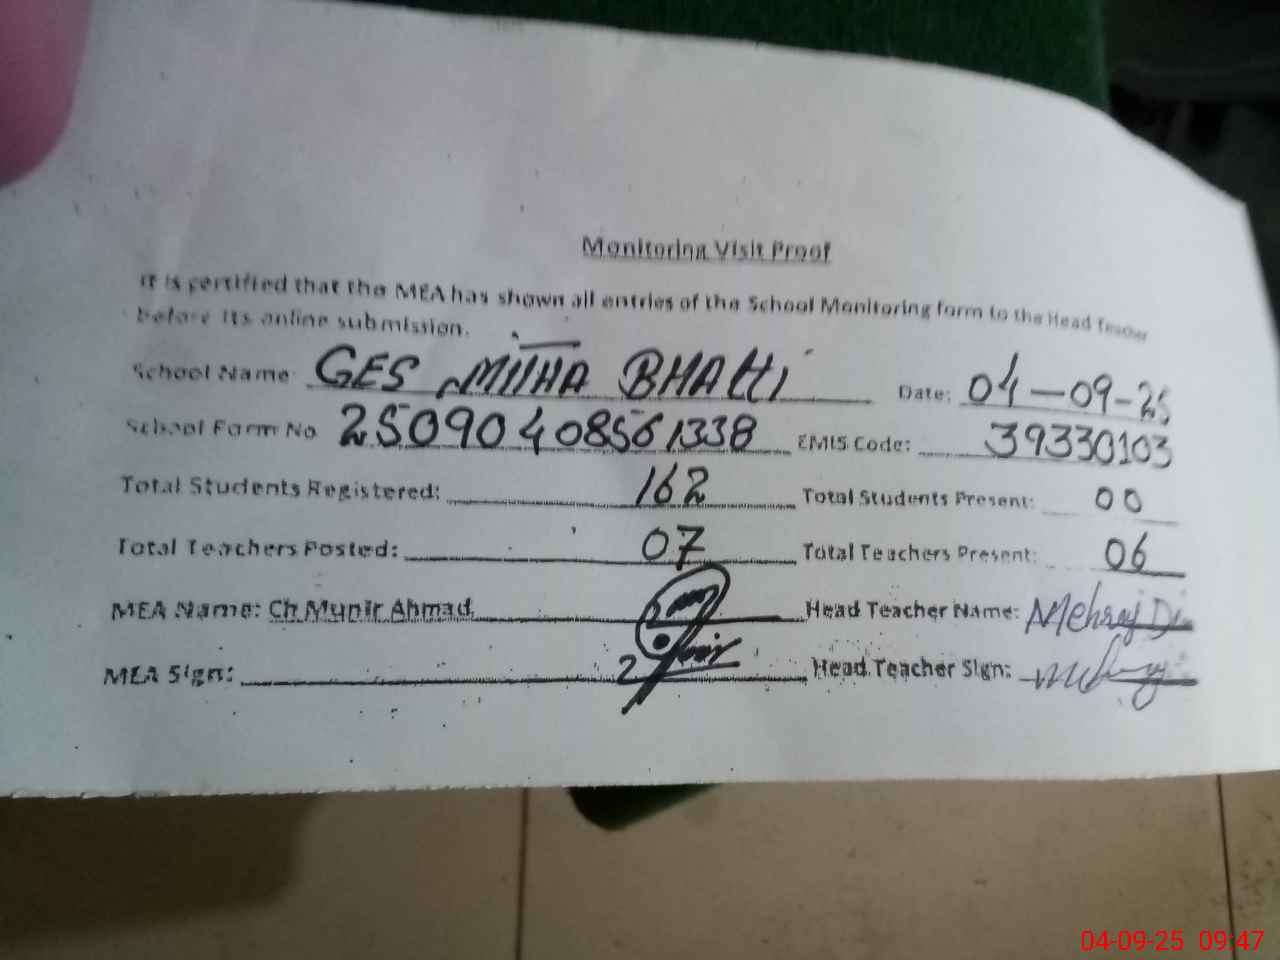 Monitoring Visit Proof
It is certified that the MEA has shown all entries of the School Monitoring form to the Head Teacher
before its online submission.
School Name: GES MITHA BHATTI Date: 04-09-25
School Form No 25090408561338 EMIS Code: 39330103
Total Students Registered: 162 Total Students Present: 00
Total Teachers Posted: 07 Total Teachers Present: 06
MEA Name: Ch Munir Ahmad Head Teacher Name: Mehraj Din
MEA Sign: Head Teacher Sign:
04-09-25 09:47